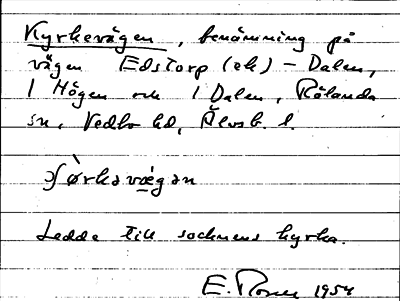 Kyrkevägen, benämning på
vägen Edstorp (ek) – Dalen,
1 Högen och 1 Dalen, Rölanda
sn, Vedbo hd, Älvsb. l.
Ledde till socknens kyrka.
E. 1954